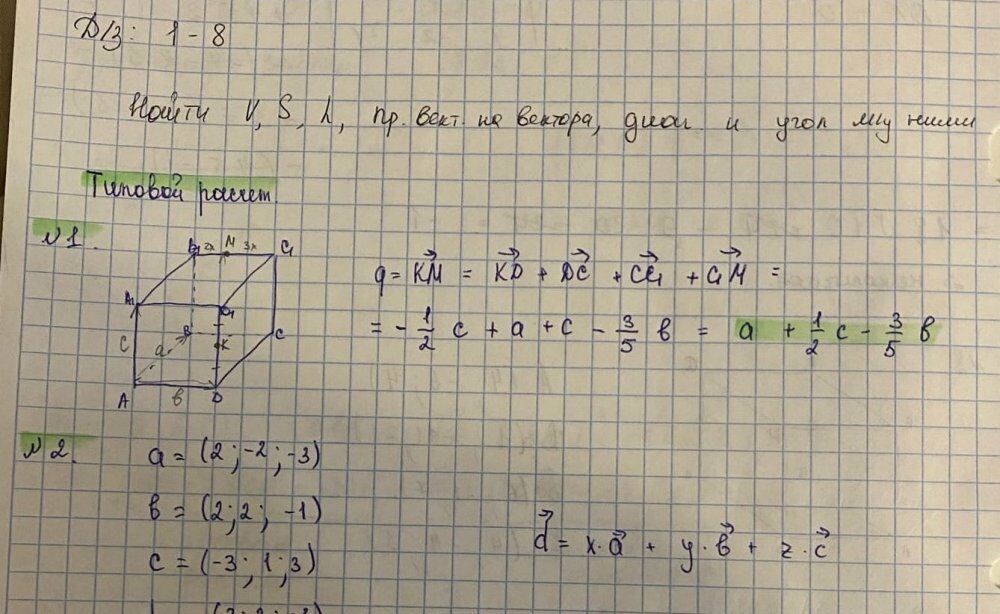 Д/З: 1 - 8
Найти V, S, h, пр. вект. на вектора, диаг. и угол м/у ними
Типовой расчет
№1.
B₁ 2x M 3x C₁
A₁ D₁
B K C
c a
A b D
q = KM = KD + DC + CC₁ + C₁M =
= - 1/2 c + a + c - 3/5 b = a + 1/2 c - 3/5 b
№2. a = (2; -2; -3)
b = (2; 2; -1)
c = (-3; 1; 3)
d = x·a + y·b + z·c